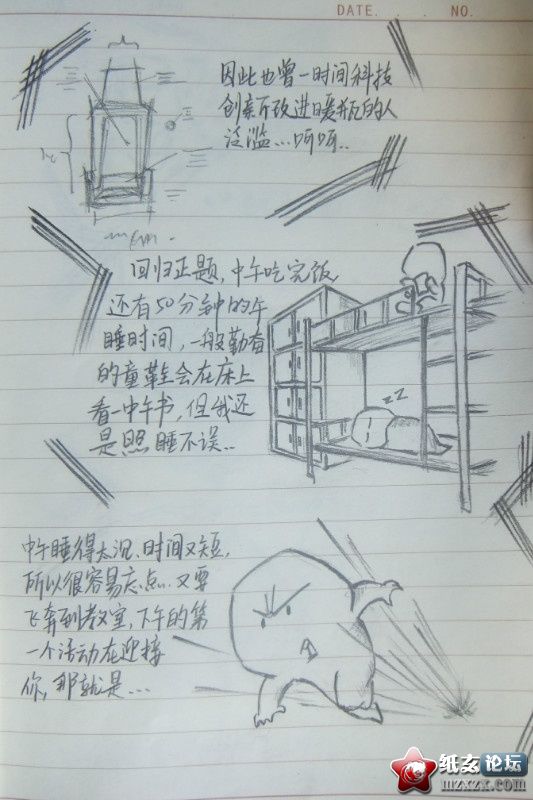 DATE. . . NO.
因此也曾一时间科技
创新所改进暖瓶的人
泛滥...呵呵..
回归正题,中午吃完饭
还有50分钟的午
睡时间,一般勤奋
的童鞋会在床上
看一中午书,但我还
是照睡不误..
zz
中午睡得太沉、时间又短,
所以很容易忘点..又要
飞奔到教室,下午的第
一个活动在迎接
你,那就是...
纸友论坛
mzxzx.com